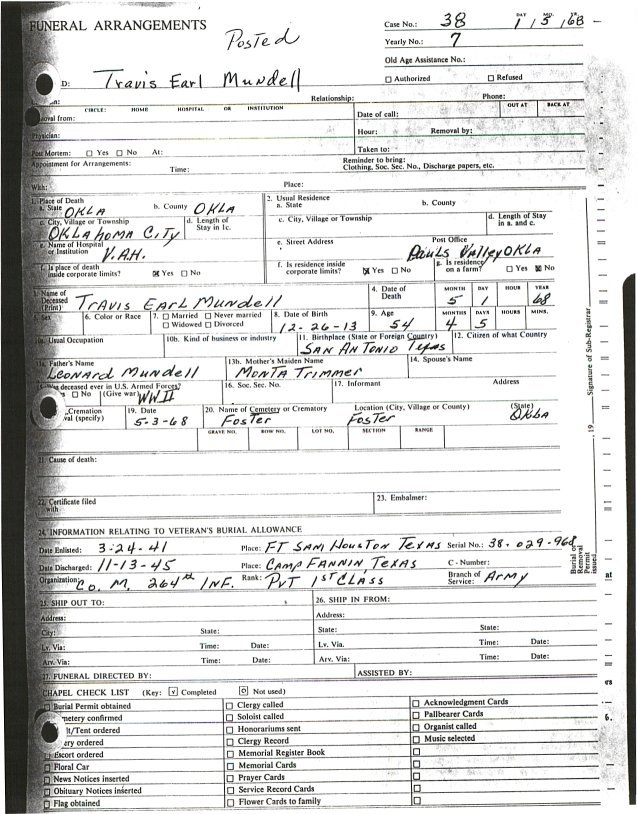 FUNERAL ARRANGEMENTS
Posted
Case No.: 38
DAY MO. YR.
1 5 68
Yearly No.: 7
Old Age Assistance No.:
☐ Authorized ☐ Refused
D: Travis Earl Mundell
Relationship: Phone:
CIRCLE: HOME HOSPITAL OR INSTITUTION OUT AT BACK AT
oval from: Date of call:
Physician: Hour: Removal by:
Post Mortem: ☐ Yes ☐ No At: Taken to:
Appointment for Arrangements: Time:
Reminder to bring:
Clothing, Soc. Sec. No., Discharge papers, etc.
With: Place:
1. Place of Death
a. State OKLA b. County OKLA
2. Usual Residence
a. State b. County
c. City, Village or Township OKLAHOMA CITY
d. Length of Stay in 1c.
c. City, Village or Township
d. Length of Stay in a. and c.
e. Name of Hospital or Institution V.A.H.
e. Street Address Post Office
PAULS VALLEY OKLA
f. Is place of death inside corporate limits? ☒ Yes ☐ No
f. Is residence inside corporate limits? ☒ Yes ☐ No
g. Is residence on a farm? ☐ Yes ☒ No
3. Name of Deceased (Print) TRAVIS EARL MUNDELL
4. Date of Death
MONTH DAY HOUR YEAR
5 1 68
5. Sex 6. Color or Race 7. ☐ Married ☐ Never married
☐ Widowed ☐ Divorced
8. Date of Birth 12-26-13
9. Age 54
MONTHS DAYS HOURS MINS.
4 5
10a. Usual Occupation 10b. Kind of business or industry
11. Birthplace (State or Foreign Country) SAN ANTONIO Texas
12. Citizen of what Country
13a. Father's Name LEONARD MUNDELL
13b. Mother's Maiden Name MONTA TRIMMER
14. Spouse's Name
deceased ever in U.S. Armed Forces?
☐ No (Give war) WW II
16. Soc. Sec. No. 17. Informant Address
Cremation
val (specify)
19. Date 5-3-68
20. Name of Cemetery or Crematory Foster
Location (City, Village or County) Foster
(State) OKLA
GRAVE NO. ROW NO. LOT NO. SECTION RANGE
21. Cause of death:
22. Certificate filed with 23. Embalmer:
24. INFORMATION RELATING TO VETERAN'S BURIAL ALLOWANCE
Date Enlisted: 3-24-41 Place: FT SAM HOUSTON TEXAS Serial No.: 38-029-968
Date Discharged: 11-13-45 Place: CAMP FANNIN, TEXAS C - Number:
Organization: Co. M. 264th INF. Rank: PVT 1ST CLASS Branch of Service: Army
25. SHIP OUT TO: 26. SHIP IN FROM:
Address: Address:
City: State: State: State:
Lv. Via: Time: Date: Lv. Via. Time: Date:
Arv. Via: Time: Date: Arv. Via: Time: Date:
27. FUNERAL DIRECTED BY: ASSISTED BY:
CHAPEL CHECK LIST (Key: ☑ Completed ☐ Not used)
☐ Burial Permit obtained ☐ Clergy called ☐ Acknowledgment Cards
metery confirmed ☐ Soloist called ☐ Pallbearer Cards
lt/Tent ordered ☐ Honorariums sent ☐ Organist called
ery ordered ☐ Clergy Record ☐ Music selected
☐ Escort ordered ☐ Memorial Register Book ☐
☐ Floral Car ☐ Memorial Cards ☐
☐ News Notices inserted ☐ Prayer Cards ☐
☐ Obituary Notices inserted ☐ Service Record Cards ☐
☐ Flag obtained ☐ Flower Cards to family ☐
Signature of Sub-Registrar
19
Burial or Removal Permit issued
at
rs
6.